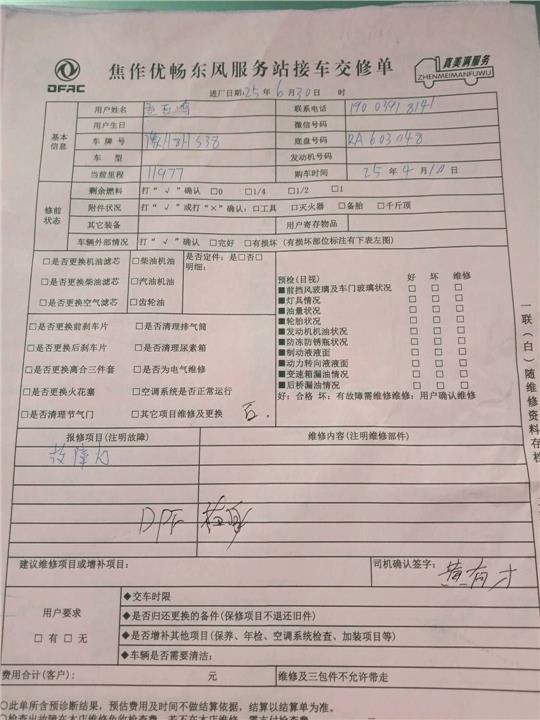 DFAC
焦作优畅东风服务站接车交修单
真美满服务
ZHENMEIMANFUWU
进厂日期:25年6月30日 时
基本信息
用户姓名
联系电话 190 0391 8141
用户生日
微信号码
车牌号
底盘号码
车型
发动机号码
当前里程 11977
购车时间 25年4月10日
修前状态
剩余燃料 打“√”确认 □0 □1/4 □1/2 □1
附件状况 打“√”或打“×”确认:□工具 □灭火器 □备胎 □千斤顶
其它装备
用户寄存物品
车辆外部情况 打“√”确认 □完好 □有损坏(有损坏部位标注有下表左图)
□是否更换机油滤芯 □柴油机油
□是否更换柴油滤芯 □汽油机油
□是否更换空气滤芯 □齿轮油
是否定件:是□否□
明细:
□是否更换前刹车片 □是否清理排气筒
□是否更换后刹车片 □是否清理尿素箱
□是否更换离合三件套 □是否为电气维修
□是否更换火花塞 □空调系统是否正常运行
□是否清理节气门 □其它项目维修及更换
预检(目视) 好 坏 维修
■前挡风玻璃及车门玻璃状况 □ □ □
■灯具情况 □ □ □
■油量状况 □ □ □
■轮胎状况 □ □ □
■发动机机油状况 □ □ □
■防冻防锈瓶状况 □ □ □
■制动液液面 □ □ □
■动力转向液液面 □ □ □
■变速箱漏油情况 □ □ □
■后桥漏油情况 □ □ □
好:合格 坏:有故障需维修维修:用户确认维修
一联(白)随维修资料存档
报修项目(注明故障)
维修内容(注明维修部件)
故障灯
DPF
建议维修项目或增补项目:
司机确认签字: 黄有才
用户要求
□有 □无
◆交车时限
◆是否归还更换的备件(保修项目不退还旧件)
◆是否增补其他项目(保养、年检、空调系统检查、加装项目等)
◆车辆是否需要清洁:
费用合计(客户): 元
维修及三包件不允许带走
○此单所含预诊断结果,预估费用及时间不做结算依据,结算以结算单为准。